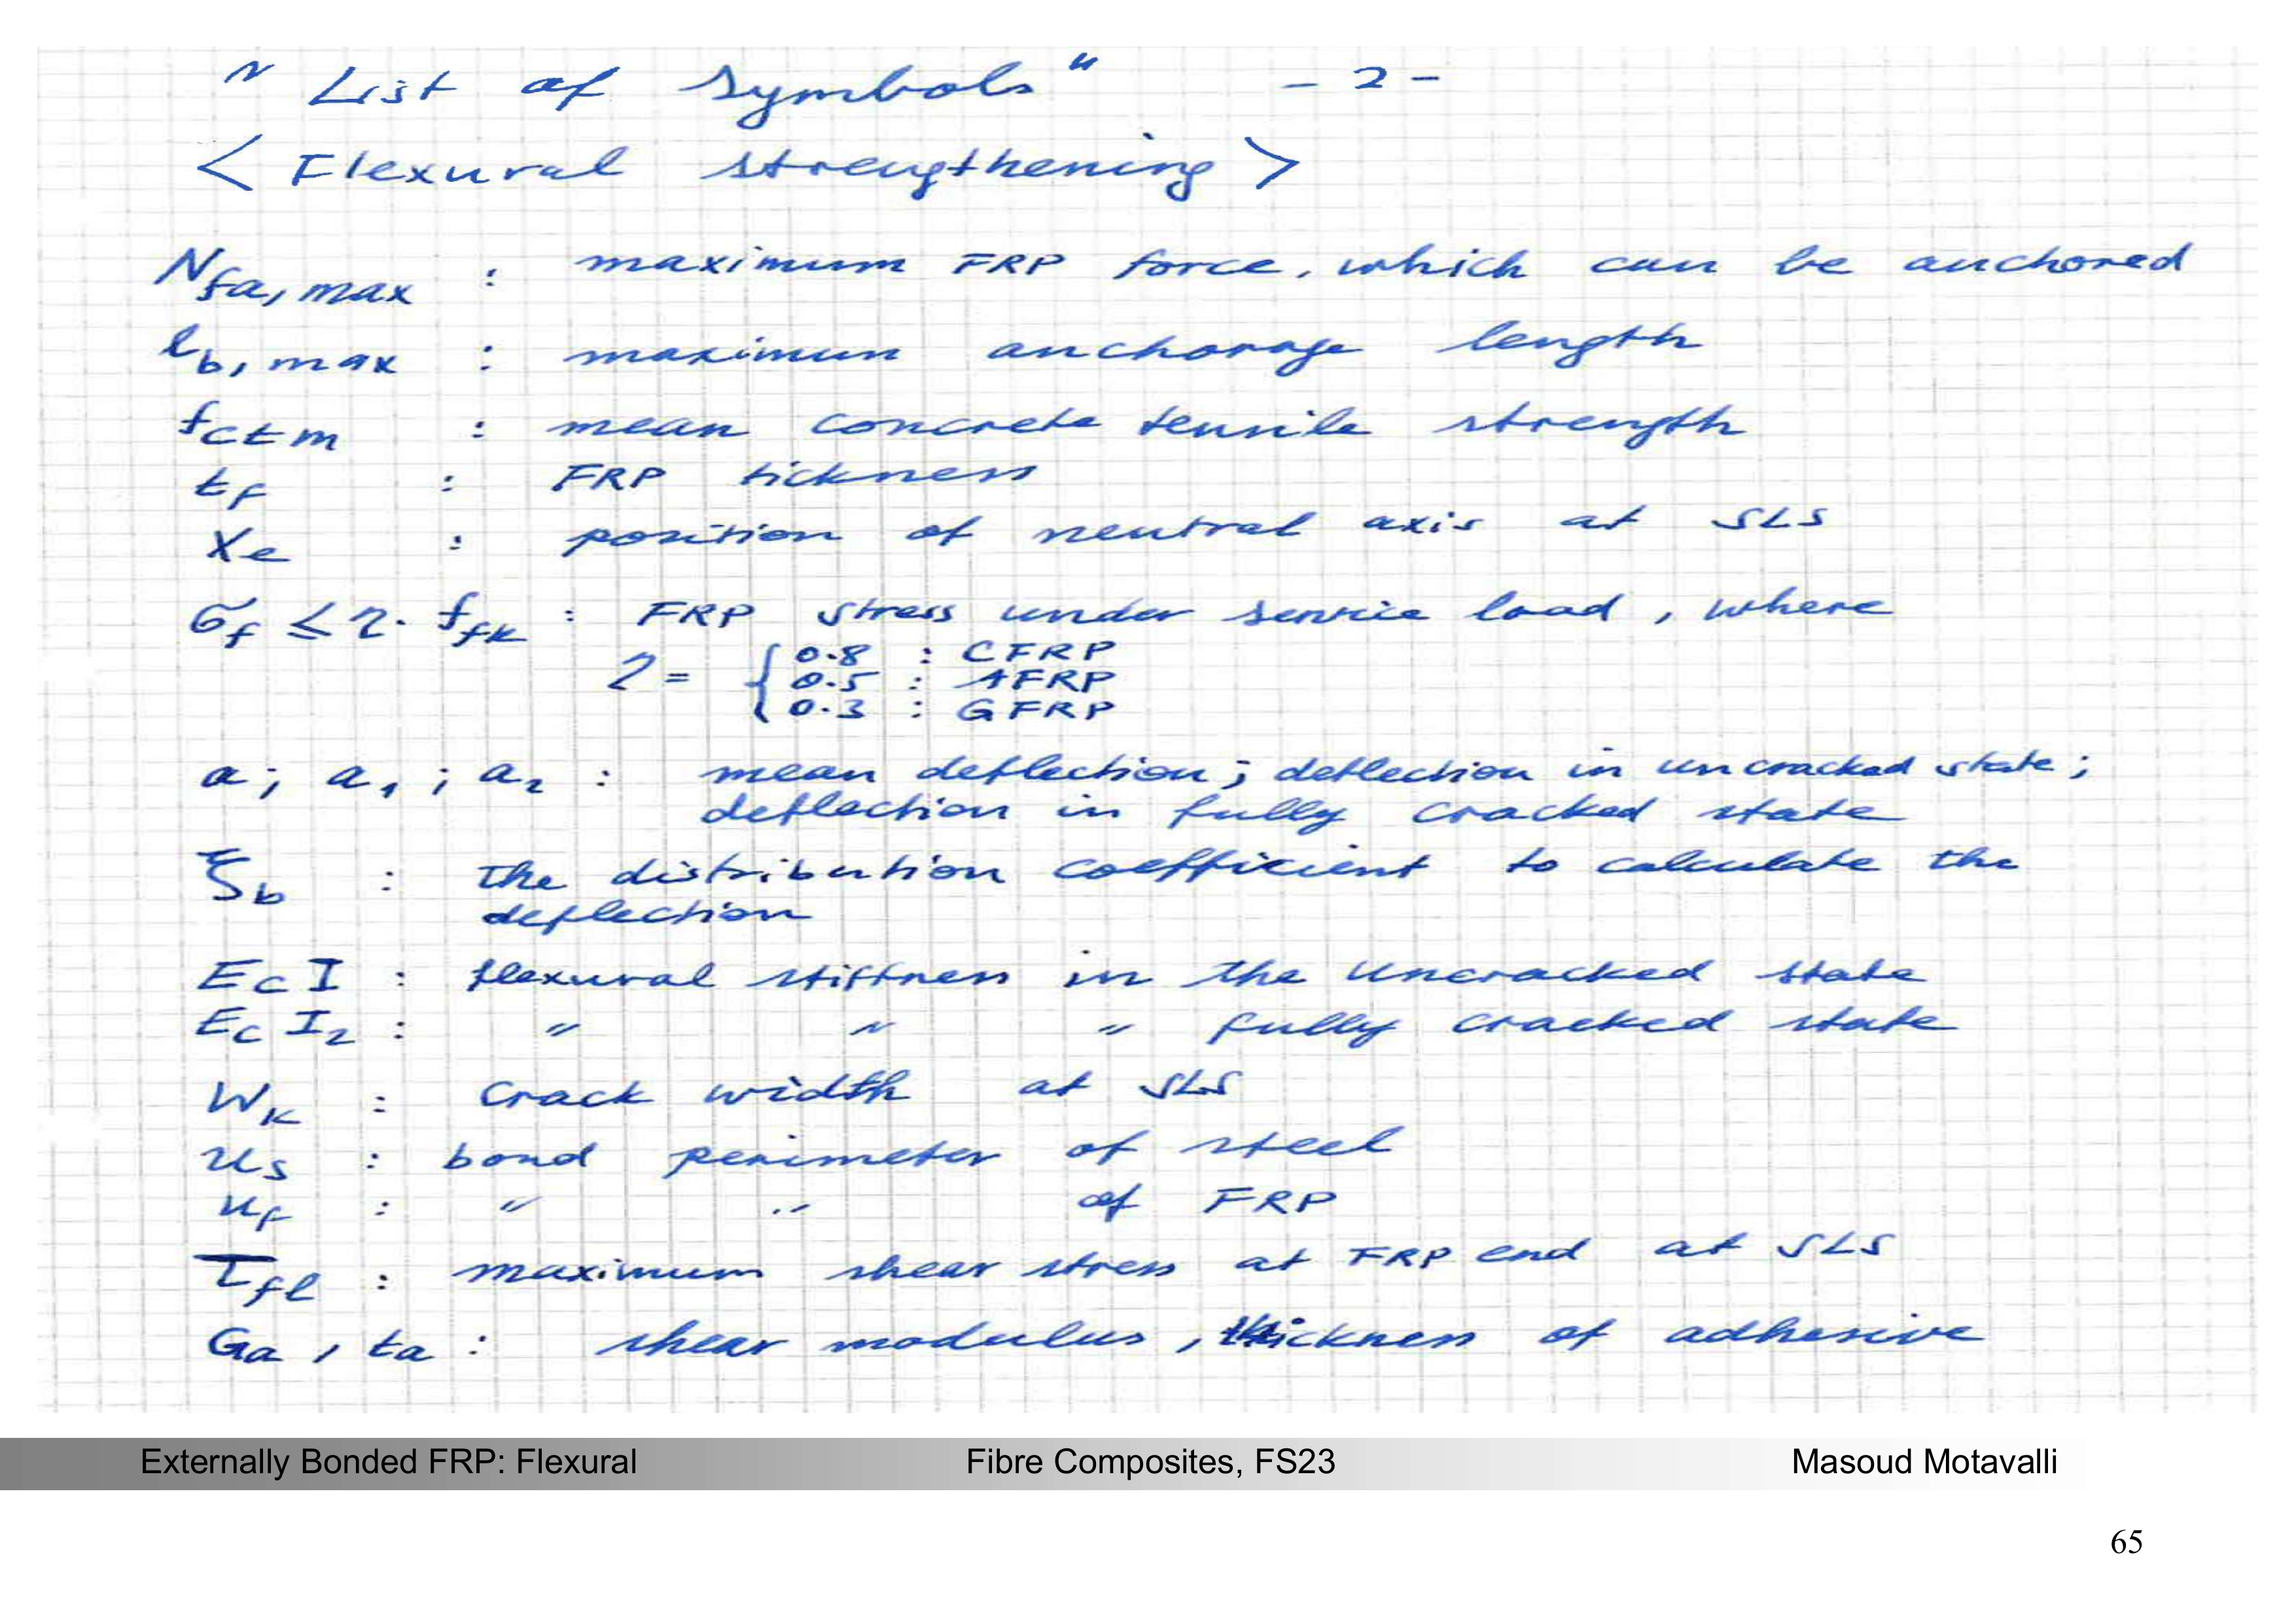 " List of Symbols " - 2 -
< Flexural strengthening >
N_fa,max : maximum FRP force, which can be anchored
l_b,max : maximun anchorage length
f_ctm : mean concrete tensile strength
t_f : FRP tickness
X_e : position of neutral axis at SLS
σ_f ≤ η · f_fk : FRP stress under service load, where
η = { 0.8 : CFRP
0.5 : AFRP
0.3 : GFRP
a ; a_1 ; a_2 : mean deflection ; deflection in uncracked state ;
deflection in fully cracked state
ξ_b : the distribution coefficient to calculate the
deflection
E_c I : flexural stiffness in the uncracked state
E_c I_2 : " " " fully cracked state
W_k : crack width at SLS
u_s : bond perimeter of steel
u_f : " " of FRP
τ_fl : maximum shear stress at FRP end at SLS
G_a , t_a : shear modulus , thickness of adhesive
Externally Bonded FRP: Flexural Fibre Composites, FS23 Masoud Motavalli
65